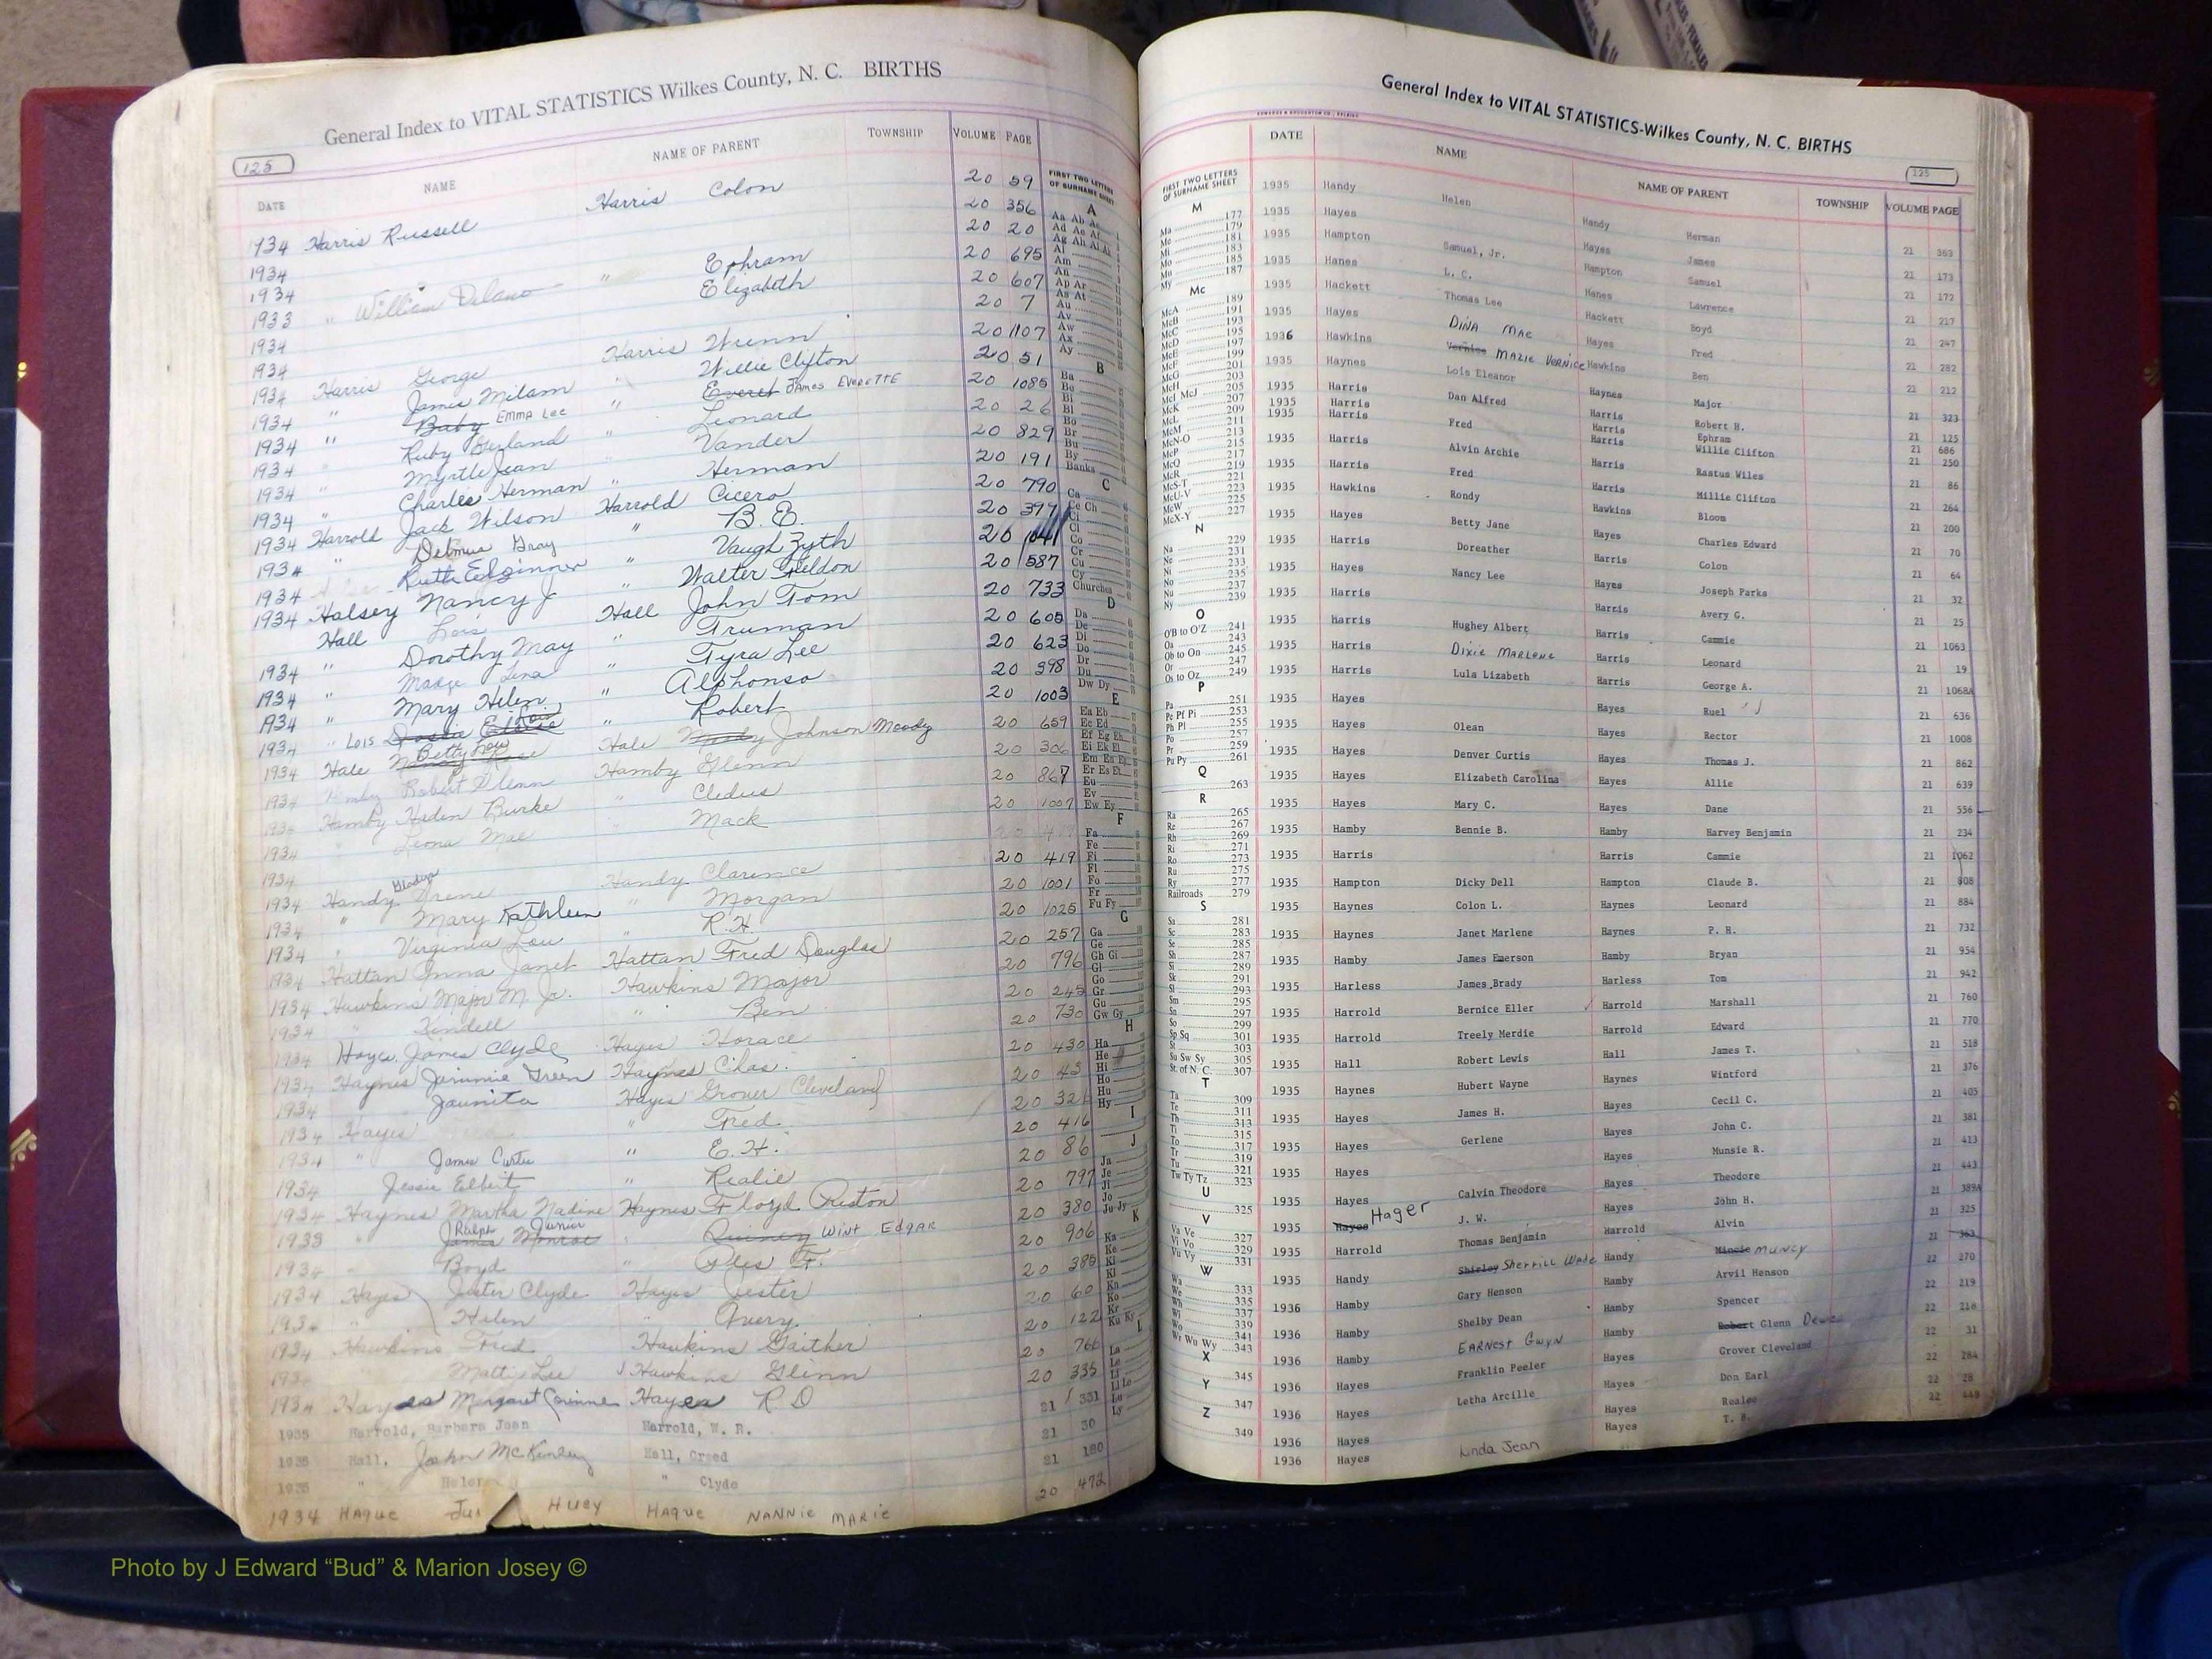 General Index to VITAL STATISTICS Wilkes County, N. C. BIRTHS
125
DATE NAME NAME OF PARENT TOWNSHIP VOLUME PAGE
1934 Harris Russell Harris Colon 20 59
1934 20 356
1934 20 20
1933 " William Delano " Ephram 20 695
1934 Elizabeth 20 607
1934 20 7
1934 Harris George Harris Wrenn 20 1107
1934 " James Milam " Willie Clifton 20 51
1934 " Baby EMMA LEE " Everet JAMES EVERETTE 20 1085
1934 " Ruby " Leonard 20 26
1934 " Myrtle Jean " Vander 20 829
1934 " Charles Herman " Herman 20 191
1934 Harrold Jack Wilson Harrold Cicero 20 790
1934 " Delmus Gray " B. E. 20 397
1934 Ruth " Vaugh Zyth 20
1934 Halsey Nancy J " Walter Feldon 20 587
Hall Lois Hall John Tom 20 733
1934 " Dorothy May " Truman 20 605
1934 " Madge Lena " Tyra Lee 20 623
1934 " Mary Helen " Alphonso 20 398
1934 " LOIS " Robert 20 1003
1934 Hale Betty Hale Moody Johnson Moody 20 659
Hamby Robert Glenn Hamby Glenn 20 306
Hamby Haden Burke " Cledus 20 867
1934 " Leona Mae " Mack 20 1007
1934
1934 Handy Gladys Irene Handy Clarence 20 419
1934 " Mary Kathleen " Morgan 20 1001
1934 " Virginia Lou " R. H. 20 1025
1934 Hattan Anna Janet Hattan Fred Douglas 20 257
1934 Hawkins Major M. Jr. Hawkins Major 20 796
1934 " Kendell " Ben 20 245
1934 Hayes, James Clyde Hayes Horace 20 730
1934 Haynes Jimmie Green Haynes Chas. 20 430
1934 Jaunita Hayes Grover Cleveland 20 43
1934 Hayes " Fred 20 321
1934 " James Curtis " E. H. 20 416
1934 Jessie Elbert " Realie 20 86
1934 Haynes Martha Nadine Haynes Floyd Preston 20 797
1933 " James Monroe Ralph Junior " Quincy WINT EDGAR 20 380
1934 Boyd " Ples F. 20 906
1934 Hayes Jester Clyde Hayes Jester 20 385
" Helen " Avery 20 60
1934 Hawkins Fred Hawkins Gaither 20 122
Matti Lee Hawkins Glenn 20 766
1934 Hayes Margaret Corinne Hayes R. D 20 335
1935 Harrold, Barbara Jean Harrold, W. R. 21 331
1935 Hall, John McKinley Hall, Creed 21 30
1935 " Helen " Clyde 21 180
1934 HAGUE HUEY HAGUE NANNIE MARIE 20 472
FIRST TWO LETTERS OF SURNAME SHEET
A
Aa Ab Ac
Ad Ae Af
Ag Ah Ai Ak
Al
Am
An
Ap Ar
As At
Au
Av
Aw
Ax
Ay
B
Ba
Be
Bi
Bl
Bo
Br
Bu
By
Banks
C
Ca
Ce Ch
Ci
Cl
Co
Cr
Cu
Cy
Churches
D
Da
De
Di
Do
Dr
Du
Dw Dy
E
Ea Eb
Ec Ed
Ef Eg Eh
Ei Ek El
Em En Ep
Er Es Et
Eu
Ev
Ew Ey
F
Fa
Fe
Fi
Fl
Fo
Fr
Fu Fy
G
Ga
Ge
Gh Gi
Gl
Go
Gr
Gu
Gw Gy
H
Ha
He
Hi
Ho
Hu
Hy
I
J
Ja
Je
Ji
Jo
Ju Jy
K
Ka
Ke
Ki
Kl
Kn
Ko
Kr
Ku Ky
L
La
Le
Li
Ll Lo
Lu
Ly
General Index to VITAL STATISTICS-Wilkes County, N. C. BIRTHS
125
FIRST TWO LETTERS OF SURNAME SHEET
M
Ma 177
Me 179
Mi 181
Mo 185
My 187
Mc
McA 189
McB 191
McC 193
McD 195
McE 197
McF 199
McG 201
McH 203
McI McJ 205
McK 207
McL 209
McM 211
McN-O 213
McP 215
McQ 217
McR 219
McS-T 221
McU-V 223
McW 225
McX-Y 227
N
Na 229
Ne 231
Ni 233
No 235
Nu 237
Ny 239
O
O'B to O'Z 241
Oa 243
Ob to On 245
Or 247
Os to Oz 249
P
Pa 251
Pe Pf Pi 253
Ph Pl 255
Po 257
Pr 259
Pu Py 261
Q
263
R
Ra 265
Re 267
Rh 269
Ri 271
Ro 273
Ru 275
Ry 277
Railroads 279
S
Sa 281
Sc 283
Se 285
Sh 287
Si 289
Sk 291
Sl 293
Sm 295
Sn 297
So 299
Sp Sq 301
St 303
Su Sw Sy 305
St. of N. C. 307
T
Ta 309
Te 311
Th 313
Ti 315
To 317
Tr 319
Tu 321
Tw Ty Tz 323
U
325
V
Va Ve 327
Vi Vo 329
Vu Vy 331
W
Wa 333
We 335
Wh 337
Wi 339
Wo 341
Wr Wu Wy 343
X
345
Y
347
Z
349
DATE NAME NAME OF PARENT TOWNSHIP VOLUME PAGE
1935 Handy Helen Handy Herman 21 363
1935 Hayes Hayes James 21 173
1935 Hampton Samuel, Jr. Hampton Samuel 21 172
1935 Hanes L. C. Hanes Lawrence 21 217
1935 Hackett Thomas Lee Hackett Boyd 21 247
1935 Hayes DINA MAE Hayes Fred 21 282
1936 Hawkins Vernice MAZIE VERNICE Hawkins Ben 21 212
1935 Haynes Lois Eleanor Haynes Major 21 323
1935 Harris Dan Alfred Harris Robert H. 21 125
1935 Harris Harris Ephram 21 686
1935 Harris Fred Harris Willie Clifton 21 250
1935 Harris Alvin Archie Harris Rastus Wiles 21 86
1935 Harris Fred Harris Millie Clifton 21 264
1935 Hawkins Rondy Hawkins Bloom 21 200
1935 Hayes Betty Jane Hayes Charles Edward 21 70
1935 Harris Doreather Harris Colon 21 64
1935 Hayes Nancy Lee Hayes Joseph Parks 21 32
1935 Harris Harris Avery G. 21 25
1935 Harris Hughey Albert Harris Cammie 21 1063
1935 Harris DIXIE MARLENE Harris Leonard 21 19
1935 Harris Lula Lizabeth Harris George A. 21 1068A
1935 Hayes Hayes Ruel 21 636
1935 Hayes Olean Hayes Rector 21 1008
1935 Hayes Denver Curtis Hayes Thomas J. 21 862
1935 Hayes Elizabeth Carolina Hayes Allie 21 639
1935 Hayes Mary C. Hayes Dane 21 556
1935 Hamby Bennie B. Hamby Harvey Benjamin 21 234
1935 Harris Harris Cammie 21 1062
1935 Hampton Dicky Dell Hampton Claude B. 21 808
1935 Haynes Colon L. Haynes Leonard 21 884
1935 Haynes Janet Marlene Haynes P. H. 21 732
1935 Hamby James Emerson Hamby Bryan 21 954
1935 Harless James Brady Harless Tom 21 942
1935 Harrold Bernice Eller Harrold Marshall 21 760
1935 Harrold Treely Merdie Harrold Edward 21 770
1935 Hall Robert Lewis Hall James T. 21 518
1935 Haynes Hubert Wayne Haynes Wintford 21 376
1935 Hayes James H. Hayes Cecil C. 21 405
1935 Hayes Gerlene Hayes John C. 21 381
1935 Hayes Hayes Munsie R. 21 413
1935 Hayes Calvin Theodore Hayes Theodore 21 443
1935 Hayes Hager J. W. Hayes John H. 21 389A
1935 Harrold Thomas Benjamin Harrold Alvin 21 325
1935 Handy Shirley SHERRILL WADE Handy Mincie MUNCY 21 363
1936 Hamby Gary Henson Hamby Arvil Henson 22 270
1936 Hamby Shelby Dean Hamby Spencer 22 219
1936 Hamby EARNEST GWYN Hamby Robert Glenn 22 218
1936 Hayes Franklin Peeler Hayes Grover Cleveland 22 31
1936 Hayes Letha Arcille Hayes Don Earl 22 284
1936 Hayes Hayes Realee 22 28
1936 Hayes Linda Jean Hayes T. B. 22 449
Photo by J Edward “Bud” & Marion Josey ©